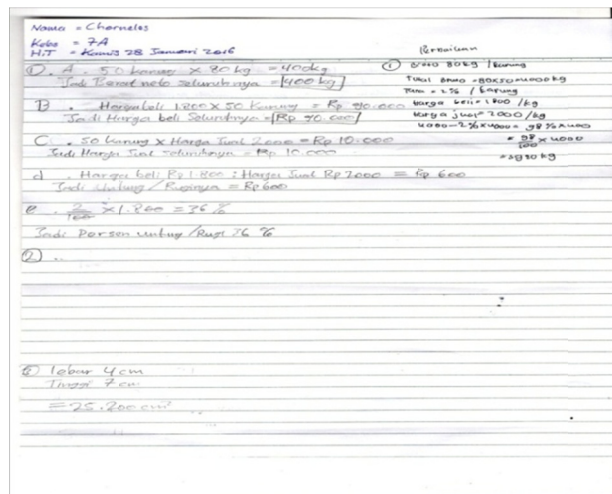 Nama = Charnelos
Kelas = 7A
H.T = Kamis 28 Januari 2016
①. A. 50 karung × 80 kg = 400kg
Jadi Berat neto seluruhnya = 400 kg
B. Harga beli 1.800 × 50 karung = Rp 90.000
Jadi Harga beli Seluruhnya = Rp 90.000
C. 50 karung × Harga Jual 2000 = Rp 10.000
Jadi Harga Jual seluruhnya = Rp 10.000
d. Harga beli Rp 1.800 : Harga Jual Rp 2000 = Rp 600
Jadi Untung / Ruginya = Rp 600
e. 2/100 × 1.800 = 36 %
Jadi Persen untung /Rugi 36 %
② ..
lebar 4cm
Tinggi 7 cm
= 25.200 cm²
Perbaikan
① Bruto 80kg / karung
Total Bruto = 80×50=4000kg
Tara = 2% / karung
Harga beli = 1800 /kg
Harga jual = 2000 /kg
4000-2%×4000 = 98%×4000
= 98/100 × 4000
=3920kg